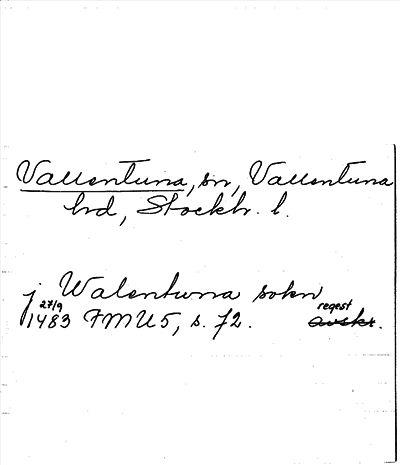 Vallentuna, sn, Vallentuna
hd, Stockh. l.
j Walentuna sokn
27/9 regest
1483 FMU 5, s. 72. avskr.